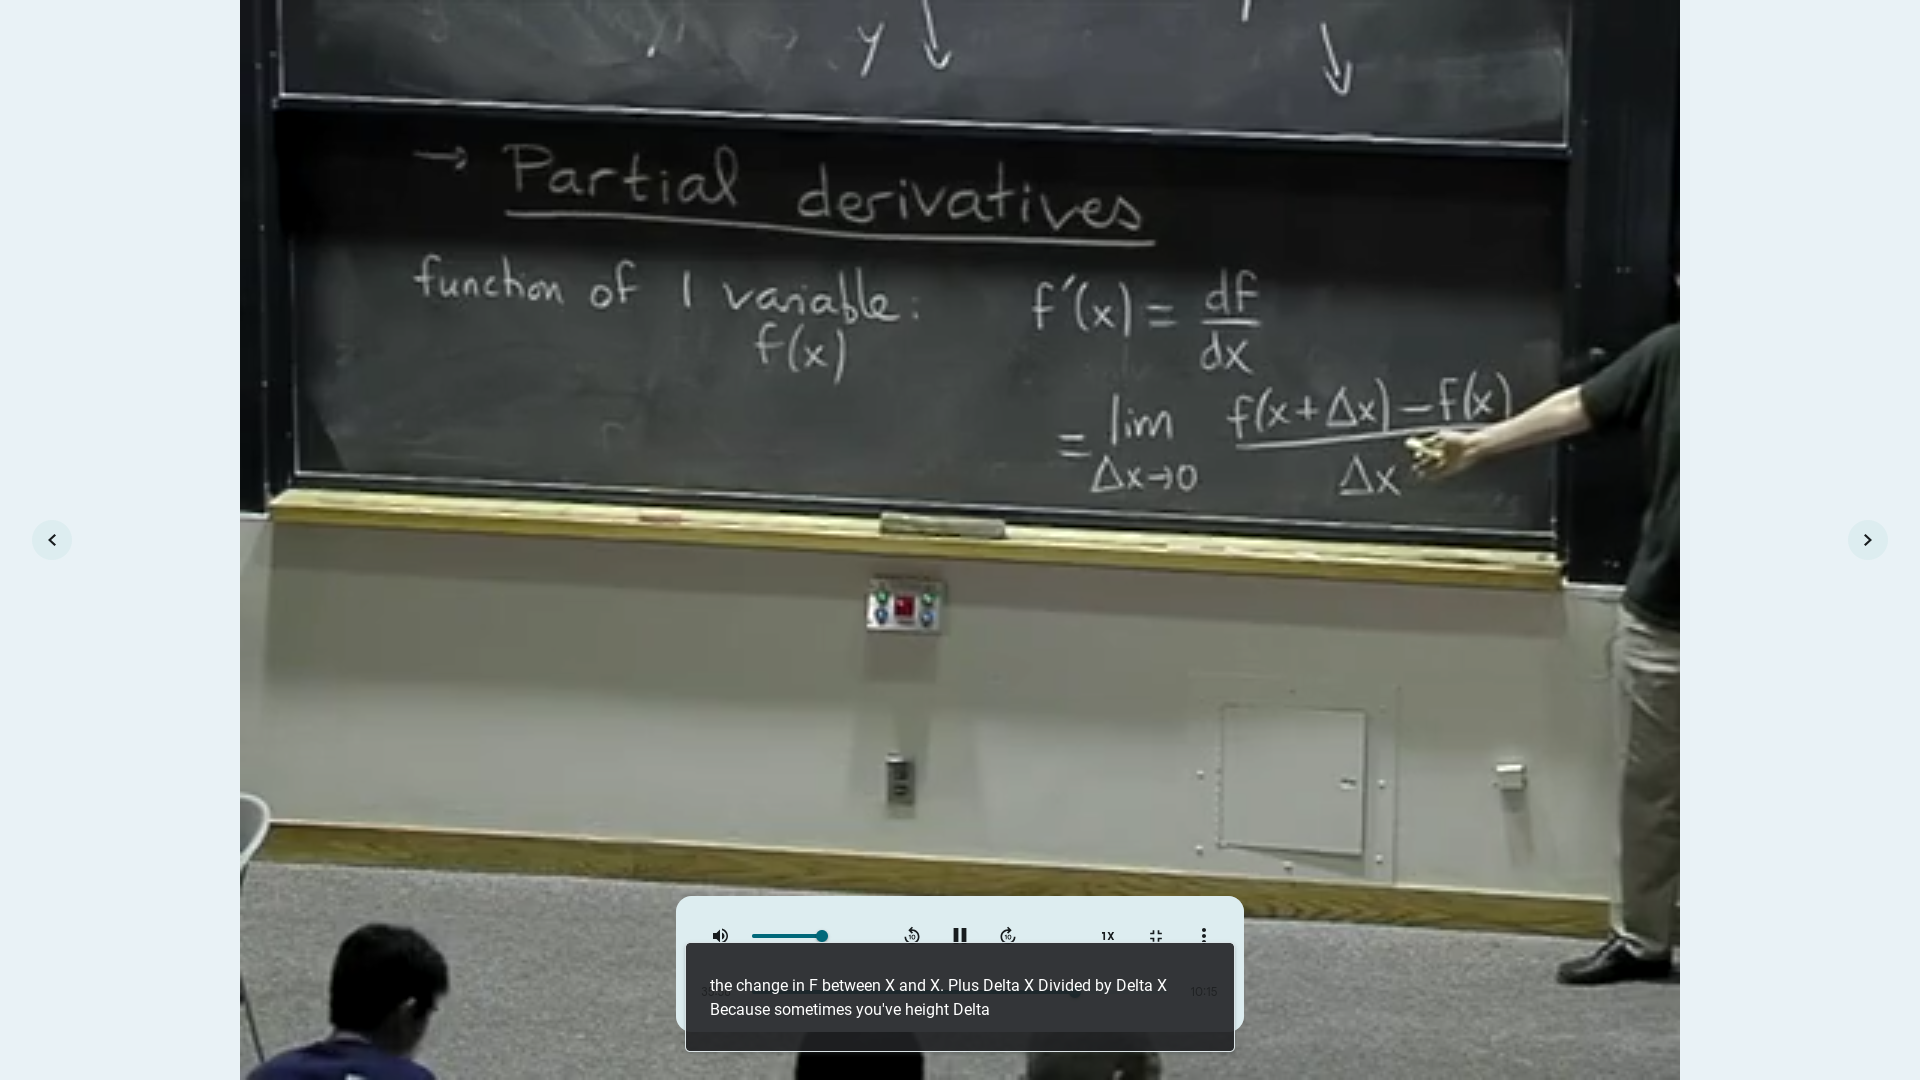 y
→ Partial derivatives
function of 1 variable: f'(x) = df/dx
f(x)
= lim Δx→0 f(x+Δx) − f(x) / Δx
1X
the change in F between X and X. Plus Delta X Divided by Delta X
10:15
Because sometimes you've height Delta